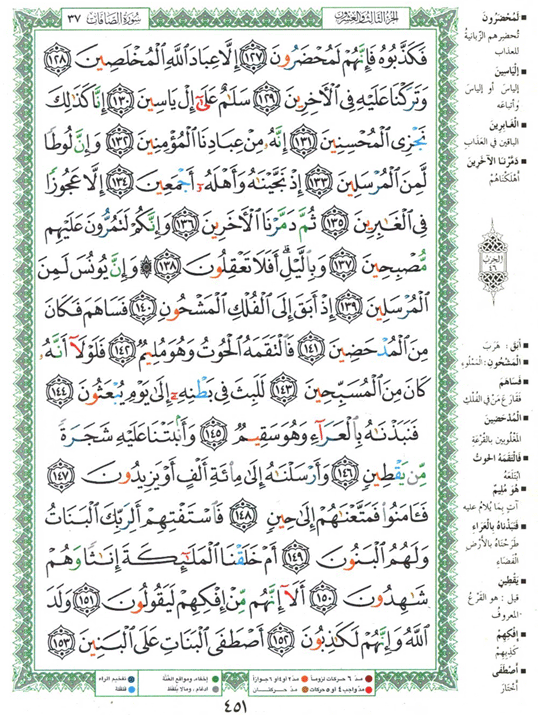 سُورَةُ الصَّافَّاتِ ٣٧
الجُزءُ الثَّالِثُ وَالعِشْرُون
فَكَذَّبُوهُ فَإِنَّهُمْ لَمُحْضَرُونَ ١٢٧ إِلَّا عِبَادَ ٱللَّهِ ٱلْمُخْلَصِينَ ١٢٨
وَتَرَكْنَا عَلَيْهِ فِى ٱلْأَخِرِينَ ١٢٩ سَلَٰمٌ عَلَىٰٓ إِلْ يَاسِينَ ١٣٠ إِنَّا كَذَٰلِكَ
نَجْزِى ٱلْمُحْسِنِينَ ١٣١ إِنَّهُۥ مِنْ عِبَادِنَا ٱلْمُؤْمِنِينَ ١٣٢ وَإِنَّ لُوطًا
لَّمِنَ ٱلْمُرْسَلِينَ ١٣٣ إِذْ نَجَّيْنَٰهُ وَأَهْلَهُۥٓ أَجْمَعِينَ ١٣٤ إِلَّا عَجُوزًا
فِى ٱلْغَٰبِرِينَ ١٣٥ ثُمَّ دَمَّرْنَا ٱلْأَخَرِينَ ١٣٦ وَإِنَّكُمْ لَتَمُرُّونَ عَلَيْهِم
مُّصْبِحِينَ ١٣٧ وَبِٱلَّيْلِ ۗ أَفَلَا تَعْقِلُونَ ١٣٨ ۞ وَإِنَّ يُونُسَ لَمِنَ
ٱلْمُرْسَلِينَ ١٣٩ إِذْ أَبَقَ إِلَى ٱلْفُلْكِ ٱلْمَشْحُونِ ١٤٠ فَسَاهَمَ فَكَانَ
مِنَ ٱلْمُدْحَضِينَ ١٤١ فَٱلْتَقَمَهُ ٱلْحُوتُ وَهُوَ مُلِيمٌ ١٤٢ فَلَوْلَآ أَنَّهُۥ
كَانَ مِنَ ٱلْمُسَبِّحِينَ ١٤٣ لَلَبِثَ فِى بَطْنِهِۦٓ إِلَىٰ يَوْمِ يُبْعَثُونَ ١٤٤
فَنَبَذْنَٰهُ بِٱلْعَرَآءِ وَهُوَ سَقِيمٌ ١٤٥ وَأَنۢبَتْنَا عَلَيْهِ شَجَرَةً
مِّن يَقْطِينٍ ١٤٦ وَأَرْسَلْنَٰهُ إِلَىٰ مِا۟ئَةِ أَلْفٍ أَوْ يَزِيدُونَ ١٤٧
فَـَٔامَنُوا۟ فَمَتَّعْنَٰهُمْ إِلَىٰ حِينٍ ١٤٨ فَٱسْتَفْتِهِمْ أَلِرَبِّكَ ٱلْبَنَاتُ
وَلَهُمُ ٱلْبَنُونَ ١٤٩ أَمْ خَلَقْنَا ٱلْمَلَٰٓئِكَةَ إِنَٰثًا وَهُمْ
شَٰهِدُونَ ١٥٠ أَلَآ إِنَّهُم مِّنْ إِفْكِهِمْ لَيَقُولُونَ ١٥١ وَلَدَ
ٱللَّهُ وَإِنَّهُمْ لَكَٰذِبُونَ ١٥٢ أَصْطَفَى ٱلْبَنَاتِ عَلَى ٱلْبَنِينَ ١٥٣
لَمُحْضَرُونَ
تُحضِرهم الزَّبانِيةُ
للعذاب
إِلْيَاسِينَ
إلياسَ أو إلياسَ
وأتباعَه
الْغَابِرِينَ
الباقين في العَذَاب
دَمَّرْنَا الآخَرِينَ
أَهْلَكْنَاهُمْ
الحزب
٤٦
أَبَقَ : هَرَبَ
الْمَشْحُونِ : المَمْلُوءِ
فَسَاهَمَ
فقَارَعَ مَنْ في الفُلْكِ
الْمُدْحَضِينَ
المَغْلُوبين بالقُرْعَةِ
فَالْتَقَمَهُ الحُوتُ
ابْتَلَعَهُ
هُوَ مُلِيمٌ
آتٍ بِمَا يُلَامُ عليه
فَنَبَذْنَاهُ بِالْعَرَاءِ
طَرَحْنَاهُ بالأَرْضِ
الفَضَاءِ
يَقْطِينٍ
قيل : هو القَرْعُ
المعروفُ
إِفْكِهِمْ
كَذِبِهِمْ
أَصْطَفَى
أَخْتَارَ
مدّ ٦ حركات لزوماً
مدّ ٢ او ٤ او ٦ جوازاً
إخفاء، ومواقع الغُنَّة
تفخيم الراء
مدّ واجب ٤ او ٥ حركات
مدّ حركتان
ادغام ، ومالا يُلفظ
قلقلة
٤٥١